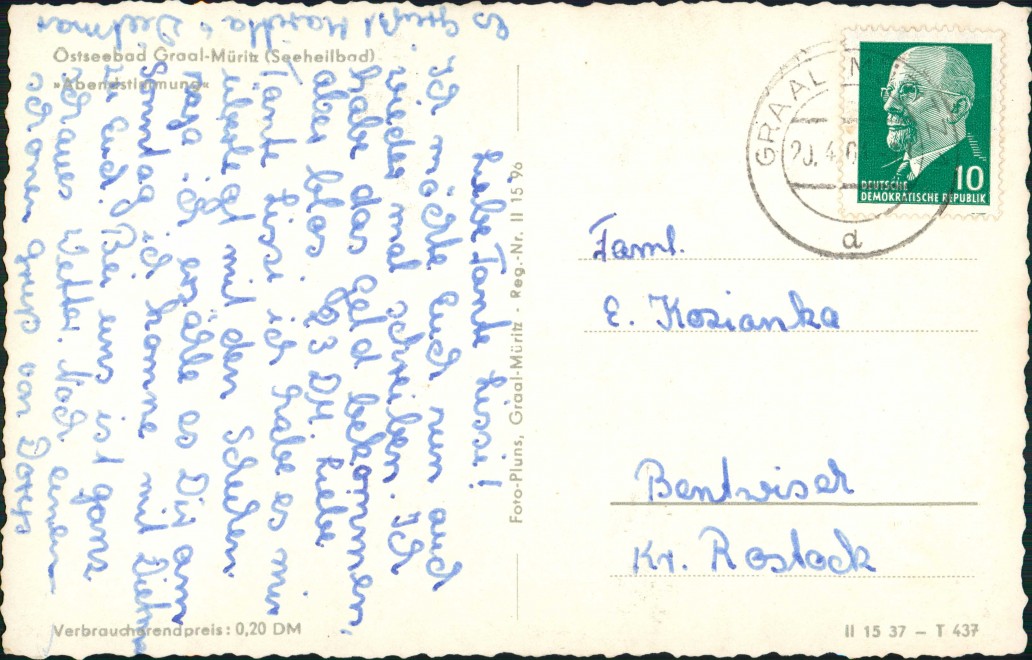 Ostseebad Graal-Müritz (Seeheilbad)
»Abendstimmung«
Liebe Tante Lissi!
Ich möchte Euch nun auch
wieder mal schreiben. Ich
habe das Geld bekommen,
aber blos 23 DM. Liebe
Tante Lissi ich habe es mir
überlegt mit den Schuhen.
Naja ich erzälle es Dir am
Sonntag ich komme mit Dietmar
zu euch. Bei uns ist ganz
Graues Wetter. Noch einen
schönen gruß von Doris
Es grüßt Marita u Dietmar
Foto-Pluns, Graal-Müritz - Reg.-Nr. II 15 96
Verbraucherendpreis: 0,20 DM
GRAAL-MÜRITZ
20.4.6
d
10
DEUTSCHE
DEMOKRATISCHE REPUBLIK
Faml.
E. Kozianka
Bentwisch
Kr. Rostock
II 15 37 – T 437